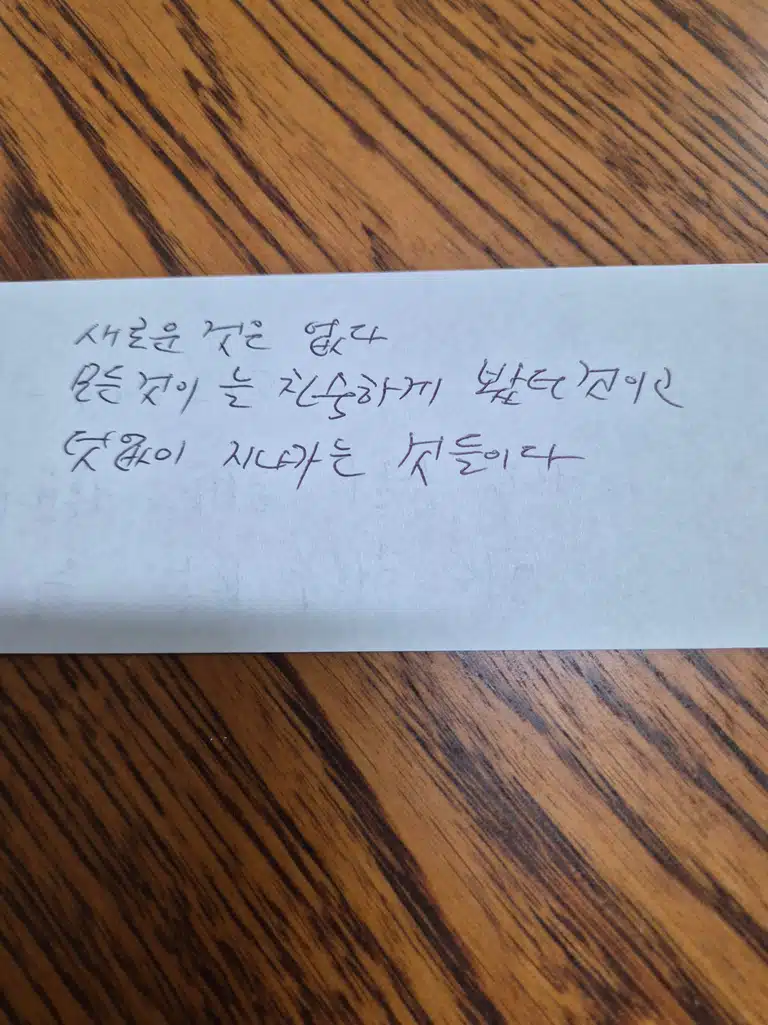 새로운 것은 없다
모든것이 늘 친숙하게 봤던것이고
덧없이 지나가는 것들이다